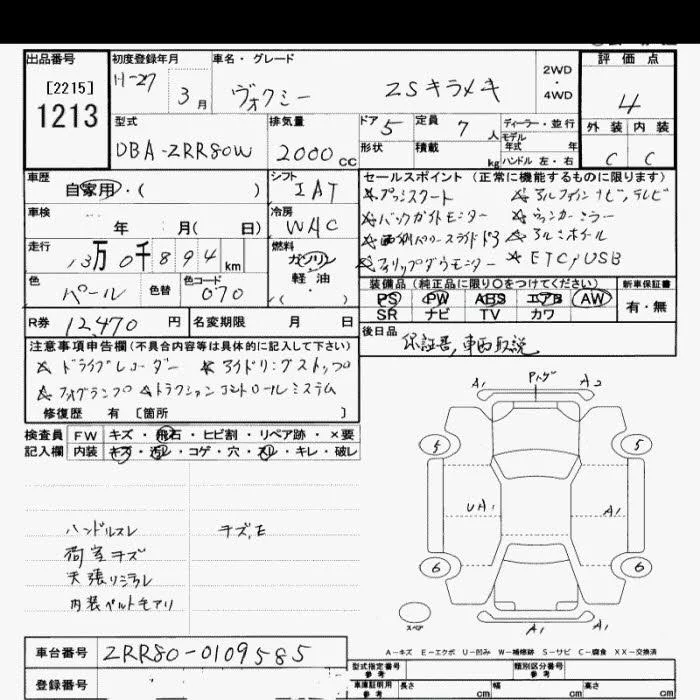 出品番号 初度登録年月 車名・グレード 評価点
[2215]
1213
H-27 3月 ヴォクシー ZSキラメキ 2WD・4WD 4
型式 排気量 ドア 5 定員 7人 ディーラー・並行 外装 内装
DBA-ZRR80W 2000CC 形状 積載 kg モデル年式 年 C C
ハンドル 左・右
車歴 自家用・( ) シフト IAT セールスポイント(正常に機能するものに限ります)
車検 年 月(日) 冷房 WAC
走行 13万0千894km 燃料 ガソリン 軽・油 ・( )
色 パール 色替 色コード 070
☆プッシュスタート ☆アルパインナビ,テレビ
☆バックガイドモニター ☆ウィンカーミラー
☆両側パワースライドドア ☆アルミホイール
☆フリップダウンモニター ☆ETC,USB
装備品(純正品に限り○をつけてください) 新車保証書
PS PW ABS エアB AW 有・無
SR ナビ TV カワ
R券 12,470円 名変期限 月 日
後日品 保証書,車両取説
注意事項申告欄(不具合内容等は具体的に記入して下さい)
☆ドライブレコーダー ☆アイドリングストップ
☆フォグランプ ☆トラクションコントロールシステム
修復歴 有 [箇所 ]
検査員 FW キズ・飛石・ヒビ割・リペア跡・×要
記入欄 内装 キズ・汚レ・コゲ・穴・スレ・キレ・破レ
A1 A2
5 5
UA1 A1
6 6
ハンドルスレ キズ,E
荷室キズ
天張リシミ
内装ベルトモアリ
スペア A1 A1
A-キズ E-エクボ U-凹み W-補修跡 S-サビ C-腐食 XX-交換済
車台番号 ZRR80-0109585
登録番号
型式指定番号 参考 類別区分番号 参考
車庫証明用 参考 長さ cm 幅 cm 高さ cm